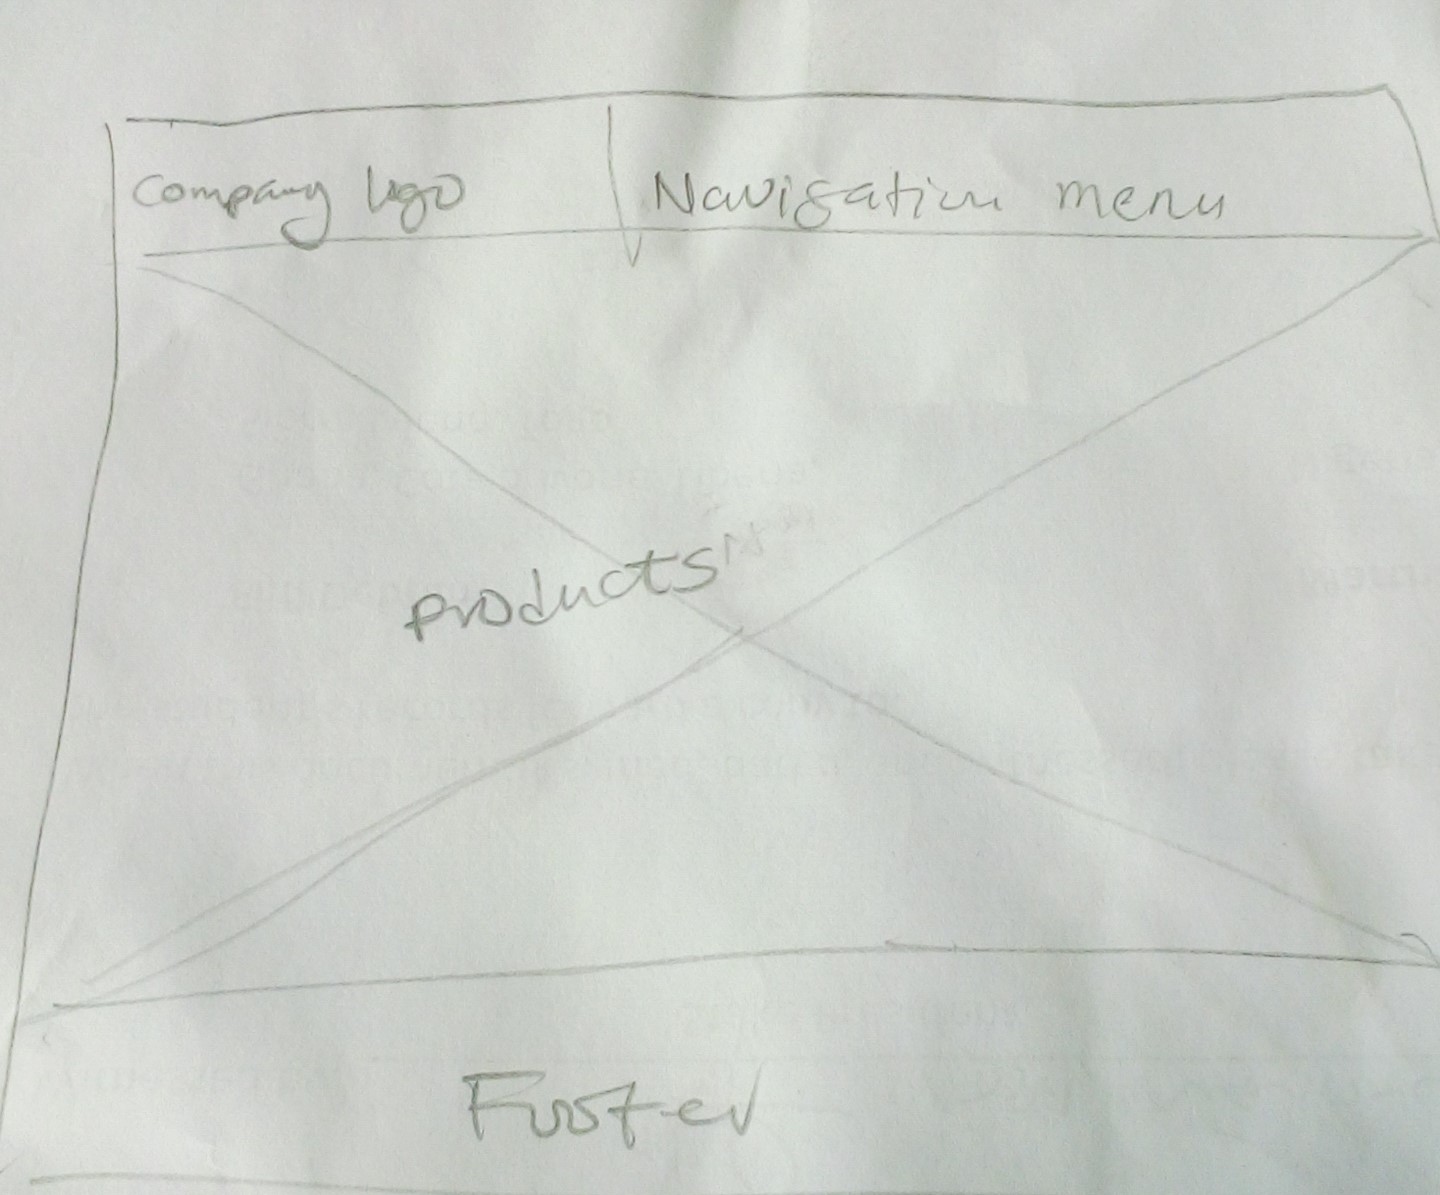 Company logo
Navigation menu
products
Footer